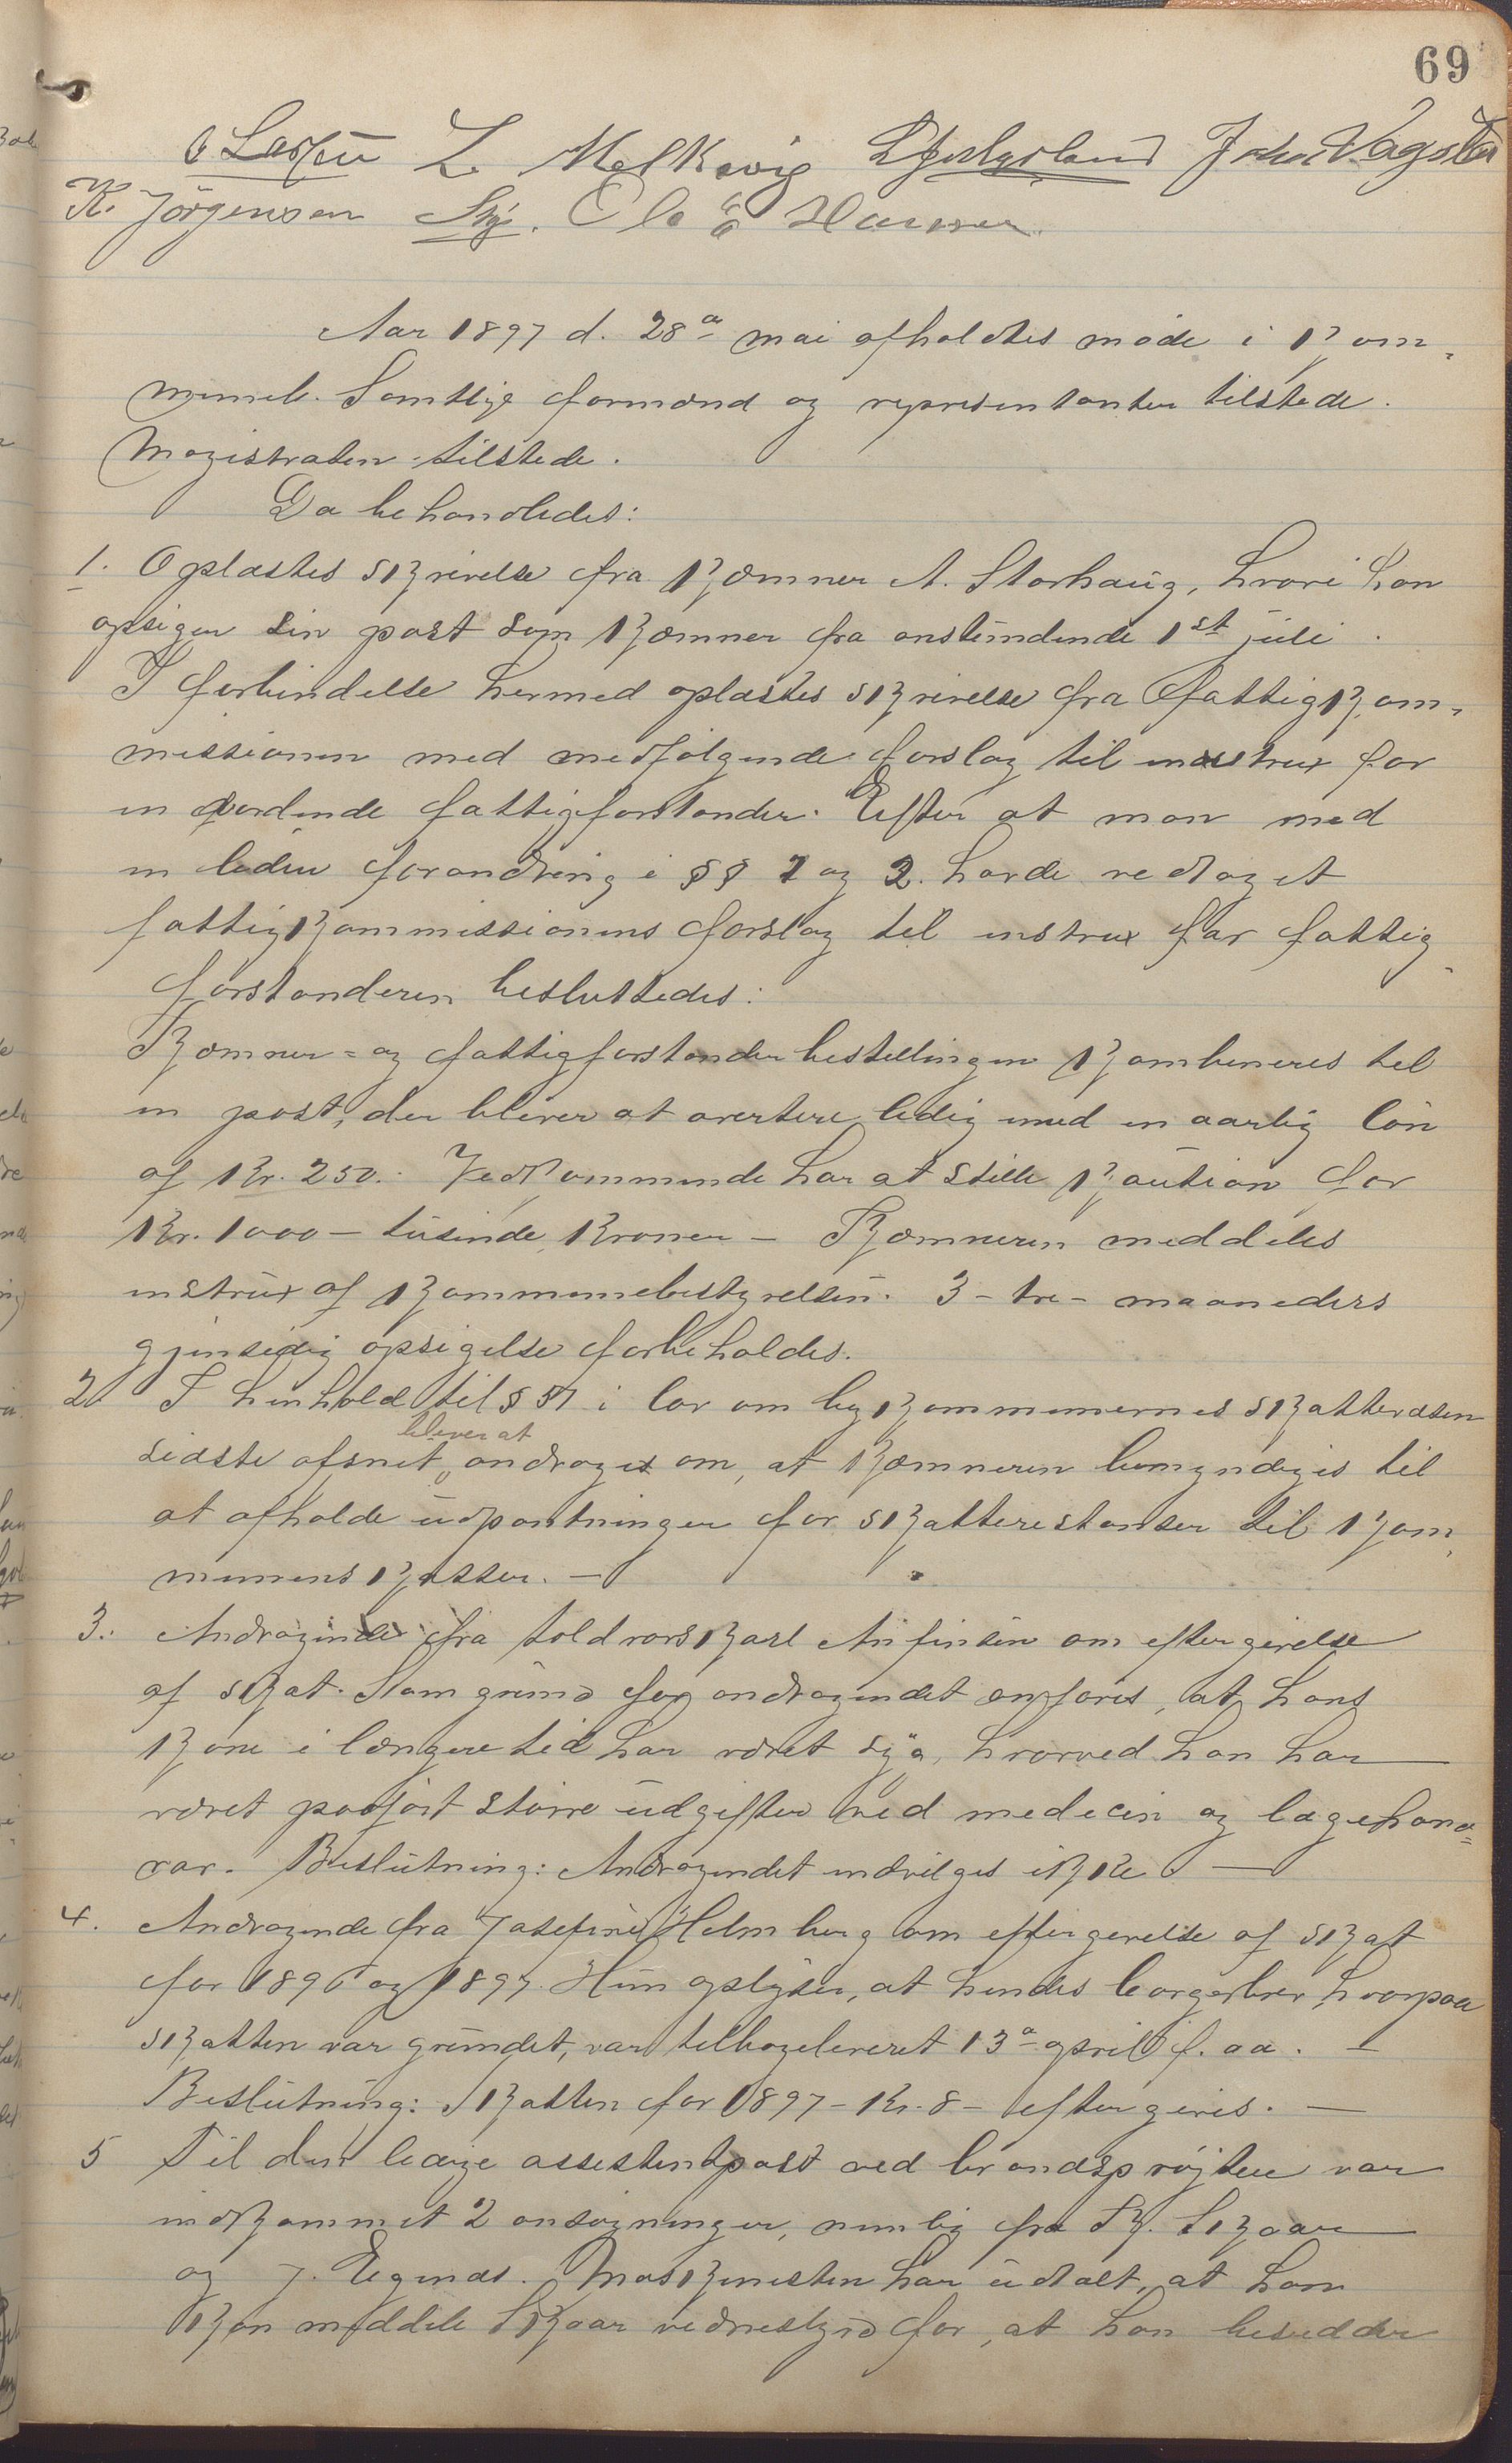 69
L. Melkevig John Vagstøl
K. Jörgensen Ole E Hansen
Aar 1897 d. 28de mai afholdtes möde i kom-
muneb. Samtlige formænd og representanter tilstede.
Magistraten tilstede.
Da behandledes:
1. Oplæstes skrivelse fra kæmner A. Storhaug, hvori han
opsiger sin post som kæmner fra anstundende 1st juli.
I forbindelse hermed oplæstes skrivelse fra fattigkom-
missionen med medfölgende forslag til instrux for
en vordende fattigforstander. Efter at man med
en liden forandring i §§ 1 og 2. havde vedtaget
fattigkommissionens forslag til instrux for fattig-
forstanderen besluttedes:
Kæmner- og fattigforstanderbestillingen kombineres til
en post, der bliver at avertere ledig med en aarlig lön
af Kr. 250. Vedkommende har at stille kaution for
Kr. 1000 - tusinde kroner - Kæmneren meddeles
instrux af kommunebestyrelsen. 3 - tre - maaneders
gjensidig opsigelse forbeholdes.
2. I henhold til § i lov om bykommunernes skattevæsen
bliver at
sidste afsnit, andrages om, at kæmneren bemyndiges til
at afholde udpantninger for skatterestanser til kom-
munens kasse. —
3. Andragende fra toldvorskarl Anfinsen om eftergivelse
af skat. Som grund for andragendet anföres, at hans
kone i længere tid har været syg, hvorved han har
været paafört större udgifter ved medicin og lægehono-
rar. Beslutning: Andragendet indvilges ikke —
4. Andragende fra Josefine Holmberg om eftergivelse af skat
for 1896 og 1897. Hun oplyser, at hendes borgerbrev, hvorpaa
skatten var grundet, var tilbageleveret 13de april f. aa. —
Beslutning: Skatten for 1897 - Kr. 8 - eftergives. —
5 Til den ledige assistentpost ved brandspröjten var
indkommet 2 ansögninger, nemlig fra K. Skaar
og J. Eegenæs. Maskinisten har udtalt, at han
kan meddele Skaar vidnesbyrd for, at han besidder